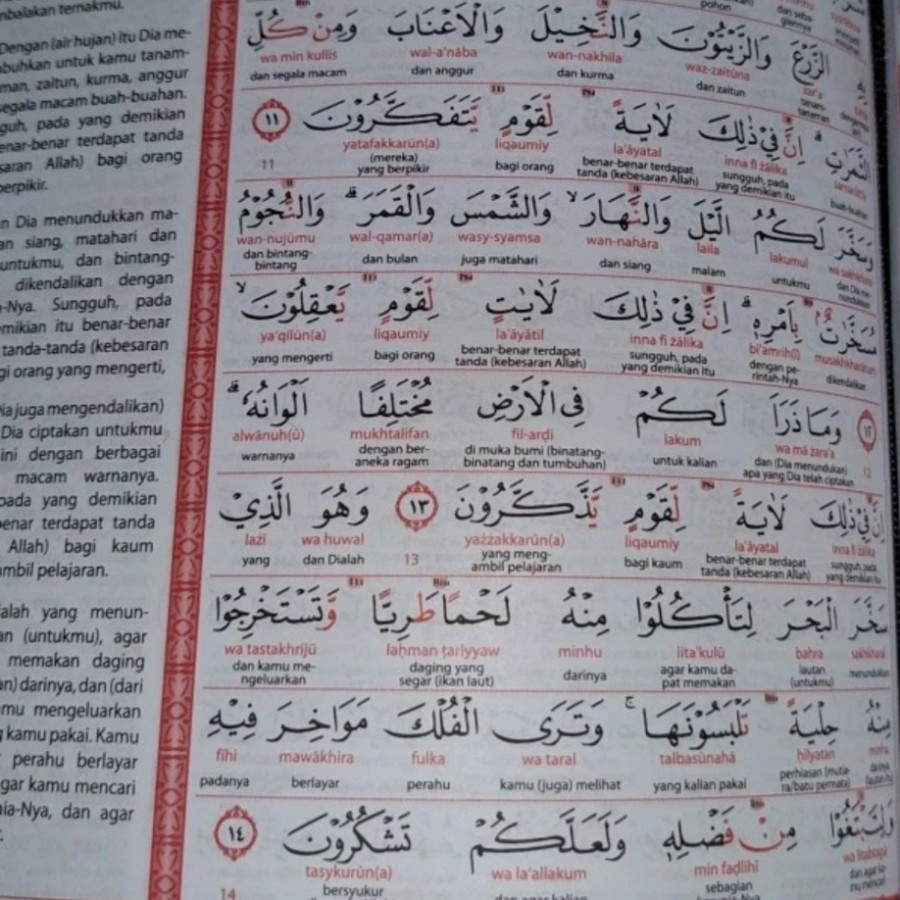 mbalakan ternakmu.
Dengan (air hujan) itu Dia me-
buhkan untuk kamu tanam-
man, zaitun, kurma, anggur
segala macam buah-buahan.
guh, pada yang demikian
enar-benar terdapat tanda
saran Allah) bagi orang
berpikir.
n Dia menundukkan ma-
an siang, matahari dan
untukmu, dan bintang-
dikendalikan dengan
-Nya. Sungguh, pada
emikian itu benar-benar
tanda-tanda (kebesaran
gi orang yang mengerti,
ia juga mengendalikan)
Dia ciptakan untukmu
ini dengan berbagai
macam warnanya.
pada yang demikian
benar terdapat tanda
Allah) bagi kaum
ambil pelajaran.
alah yang menun-
an (untukmu), agar
memakan daging
an) darinya, dan (dari
amu mengeluarkan
g kamu pakai. Kamu
perahu berlayar
gar kamu mencari
nia-Nya, dan agar
الزَّرْعَ وَالزَّيْتُوْنَ وَالنَّخِيْلَ وَالْاَعْنَابَ وَمِنْ كُلِّ
zar'a waz-zaitūna wan-nakhīla wal-a'nāba wa min kullis
dan zaitun dan kurma dan anggur dan segala macam
الثَّمَرٰتِۗ اِنَّ فِيْ ذٰلِكَ لَاٰيَةً لِّقَوْمٍ يَّتَفَكَّرُوْنَ ١١
inna fī żālika la'āyatal liqaumiy yatafakkarūn(a) 11
buah-buahan sungguh, pada yang demikian itu benar-benar terdapat tanda (kebesaran Allah) bagi orang (mereka) yang berpikir
وَسَخَّرَ لَكُمُ الَّيْلَ وَالنَّهَارَۙ وَالشَّمْسَ وَالْقَمَرَۗ وَالنُّجُوْمُ
wa sakhkhara lakumul laila wan-nahāra wasy-syamsa wal-qamar(a) wan-nujūmu
dan Dia menundukkan untukmu malam dan siang juga matahari dan bulan dan bintang-bintang
مُسَخَّرٰتٌۢ بِاَمْرِهٖۗ اِنَّ فِيْ ذٰلِكَ لَاٰيٰتٍ لِّقَوْمٍ يَّعْقِلُوْنَۙ
musakhkharātum bi'amrih(ī) inna fī żālika la'āyātil liqaumiy ya'qilūn(a)
dikendalikan dengan perintah-Nya sungguh, pada yang demikian itu benar-benar terdapat tanda (kebesaran Allah) bagi orang yang mengerti
١٢ وَمَا ذَرَاَ لَكُمْ فِى الْاَرْضِ مُخْتَلِفًا اَلْوَانُهٗۗ
12 wa mā żara'a lakum fil-arḍi mukhtalifan alwānuh(ū)
dan (Dia menundukan) apa yang Dia telah ciptakan untuk kalian di muka bumi (binatang-binatang dan tumbuhan) dengan beraneka ragam warnanya
اِنَّ فِيْ ذٰلِكَ لَاٰيَةً لِّقَوْمٍ يَّذَّكَّرُوْنَ ١٣ وَهُوَ الَّذِيْ
inna fī żālika la'āyatal liqaumiy yażżakkarūn(a) 13 wa huwal lażī
sungguh, pada yang demikian itu benar-benar terdapat tanda (kebesaran Allah) bagi kaum yang mengambil pelajaran dan Dialah yang
سَخَّرَ الْبَحْرَ لِتَأْكُلُوْا مِنْهُ لَحْمًا طَرِيًّا وَّتَسْتَخْرِجُوْا
sakhkharal baḥra lita'kulū minhu laḥman ṭariyyaw wa tastakhrijū
menundukkan lautan (untukmu) agar kamu dapat memakan darinya daging yang segar (ikan laut) dan kamu mengeluarkan
مِنْهُ حِلْيَةً تَلْبَسُوْنَهَاۚ وَتَرَى الْفُلْكَ مَوَاخِرَ فِيْهِ
minhu ḥilyatan talbasūnahā wa taral fulka mawākhira fīhi
perhiasan (mutiara/batu permata) yang kalian pakai kamu (juga) melihat perahu berlayar padanya
وَلِتَبْتَغُوْا مِنْ فَضْلِهٖ وَلَعَلَّكُمْ تَشْكُرُوْنَ ١٤
wa litabtagū min faḍlihī wa la'allakum tasykurūn(a) 14
sebagian bersyukur